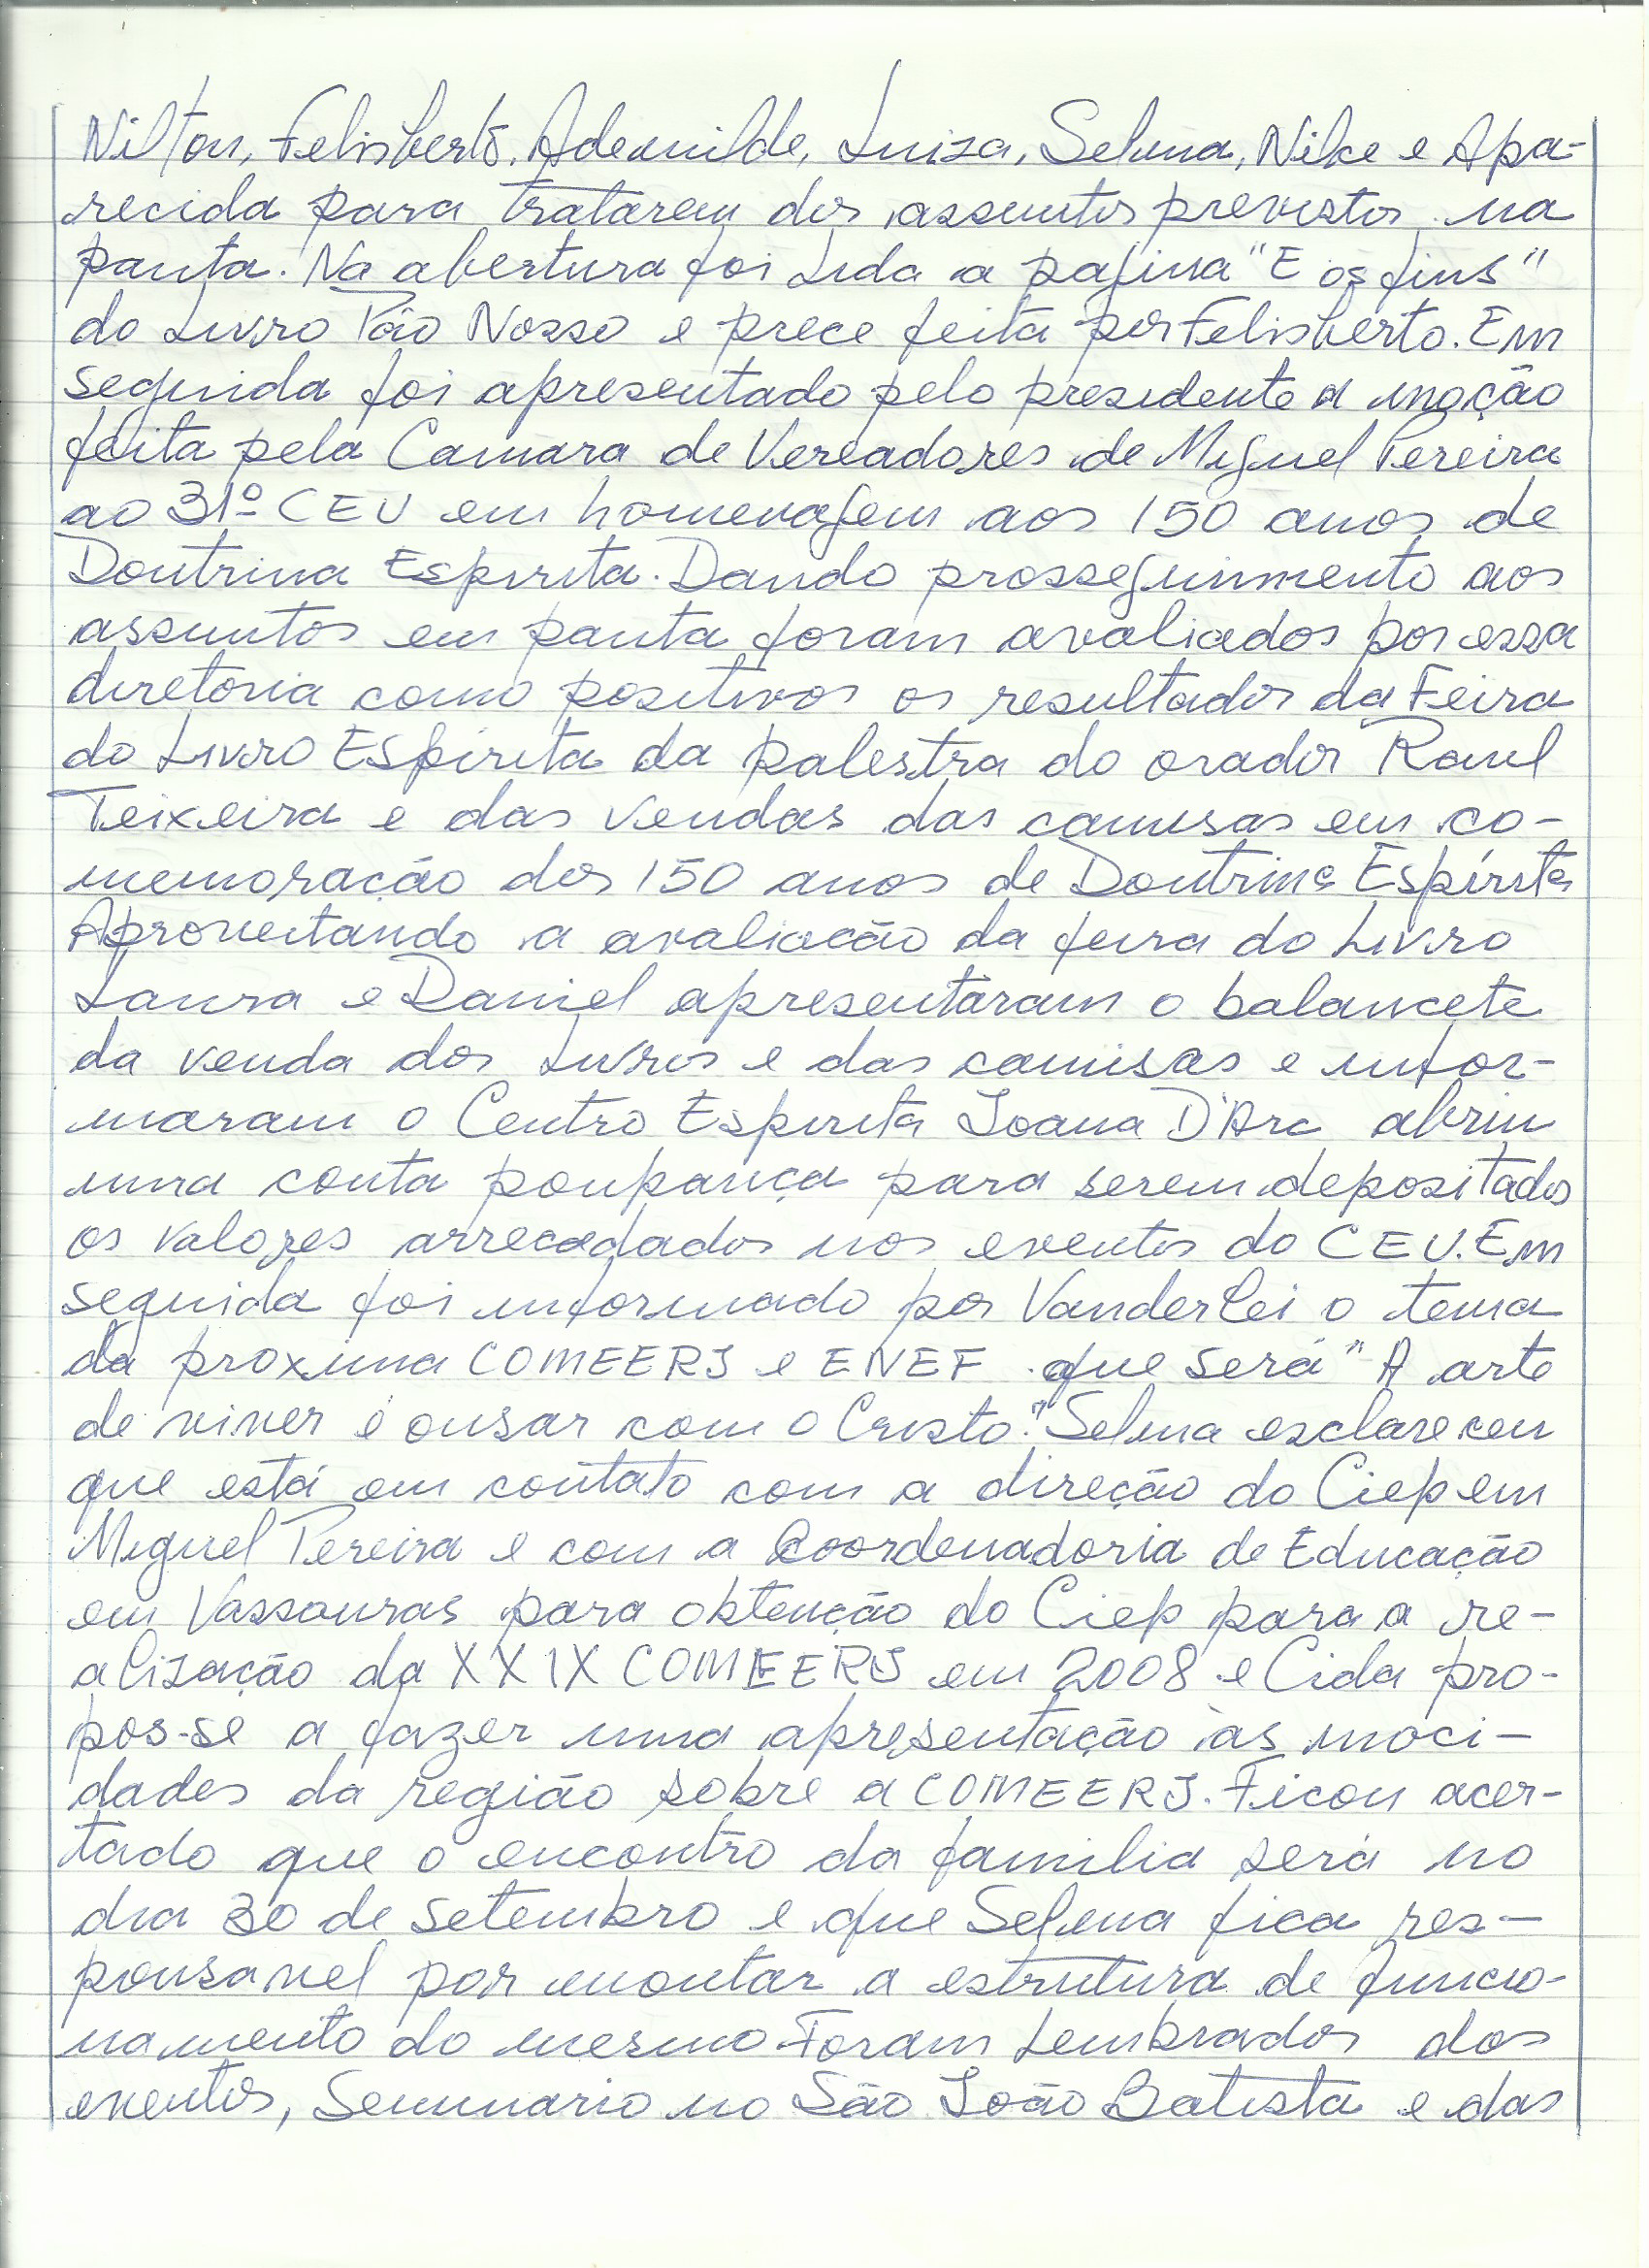 Nilton, Felisberto, Ademilde, Luiza, Selma, Nilce e Apa-
recida para tratarem dos assuntos previstos na
pauta. Na abertura foi lida a pagina "E os fins"
do Livro Pão Nosso e prece feita por Felisberto. Em
seguida foi apresentado pelo presidente a moção
feita pela Camara de Vereadores de Miguel Pereira
ao 31º CEU em homenagem aos 150 anos de
Doutrina Espirita. Dando prosseguimento aos
assuntos em pauta foram avaliados por essa
diretoria como positivos os resultados da Feira
do Livro Espirita da palestra do orador Raul
Teixeira e das vendas das camisas em co-
memoração dos 150 anos de Doutrina Espírita
Aproveitando a avaliação da feira do Livro
Laura e Daniel apresentaram o balancete
da venda dos Livros e das camisas e infor-
maram o Centro Espirita Joana D'Arc abriu
uma conta poupança para serem depositados
os valores arrecadados nos eventos do CEU. Em
seguida foi informado por Vanderlei o tema
da proxima COMEERJ e ENEF que será "A arte
de viver é ousar com o Cristo". Selma esclareceu
que está em contato com a direção do Ciep em
Miguel Pereira e com a Coordenadoria de Educação
em Vassouras para obtenção do Ciep para a re-
alização da XXIX COMEERJ em 2008 e Cida pro-
pos-se a fazer uma apresentação às moci-
dades da região sobre a COMEERJ. Ficou acer-
tado que o encontro da familia será no
dia 30 de setembro e que Selma fica res-
ponsavel por montar a estrutura de funcio-
namento do mesmo. Foram Lembrados dos
eventos, Seminario no São João Batista e das